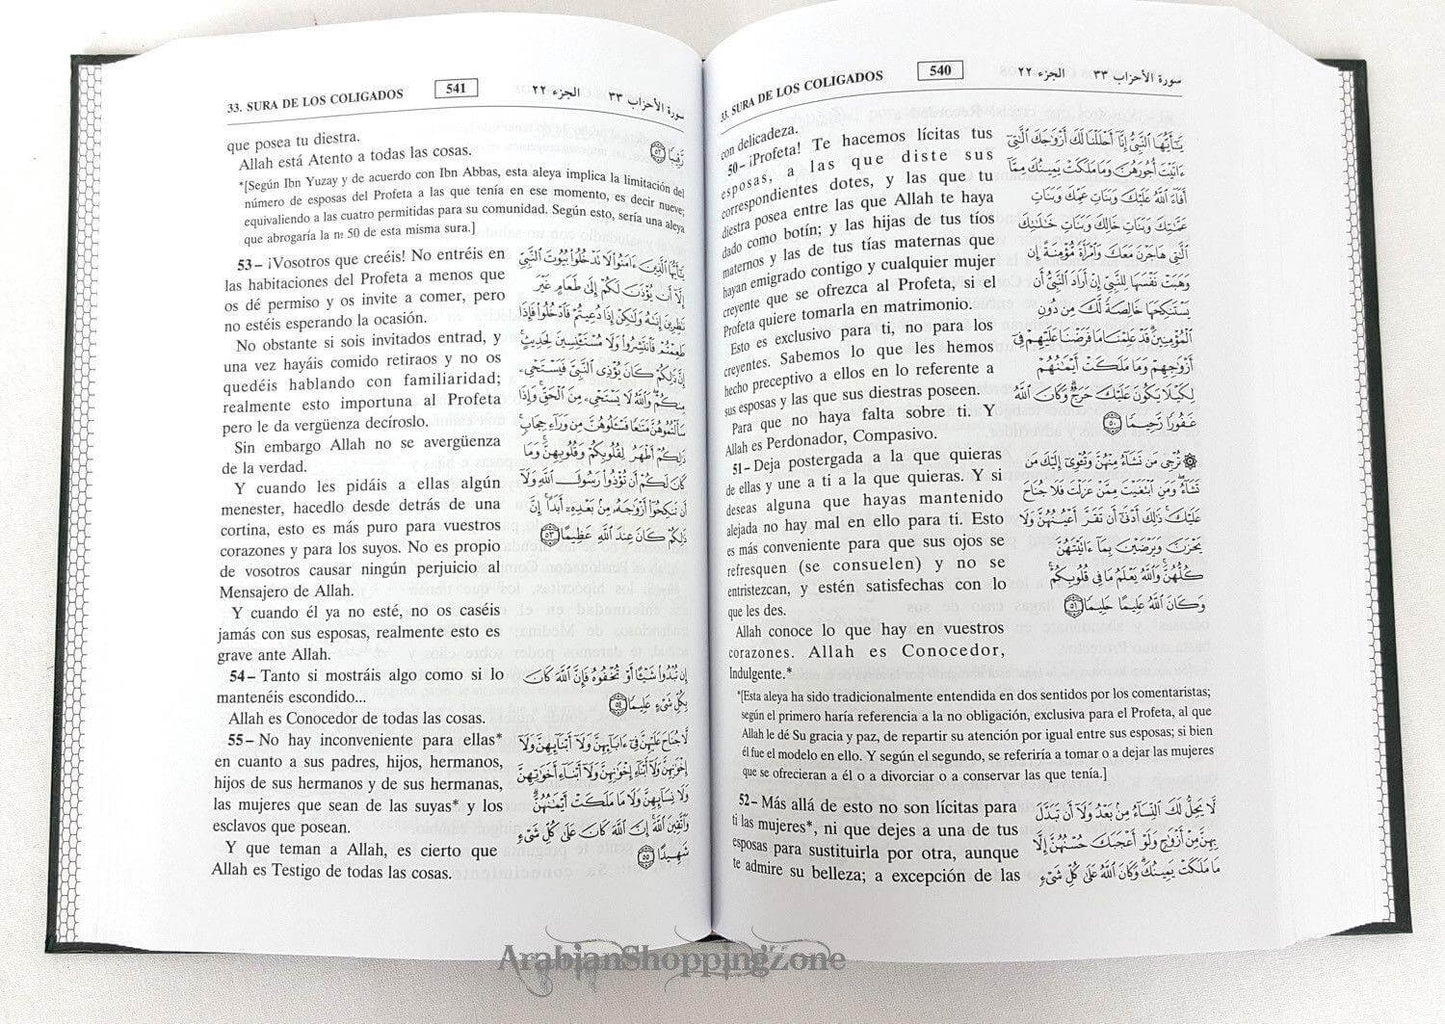 33. SURA DE LOS COLIGADOS 540 الجزء ٢٢ سورة الأحزاب ٣٣
con delicadeza.
50– ¡Profeta! Te hacemos lícitas tus
esposas, a las que diste sus
correspondientes dotes, y las que tu
diestra posea entre las que Allah te haya
dado como botín; y las hijas de tus tíos
maternos y las de tus tías maternas que
hayan emigrado contigo y cualquier mujer
creyente que se ofrezca al Profeta, si el
Profeta quiere tomarla en matrimonio.
Esto es exclusivo para ti, no para los
creyentes. Sabemos lo que les hemos
hecho preceptivo a ellos en lo referente a
sus esposas y las que sus diestras poseen.
Para que no haya falta sobre ti. Y
Allah es Perdonador, Compasivo.
يَٰٓأَيُّهَا ٱلنَّبِىُّ إِنَّآ أَحْلَلْنَا لَكَ أَزْوَٰجَكَ ٱلَّٰتِىٓ
ءَاتَيْتَ أُجُورَهُنَّ وَمَا مَلَكَتْ يَمِينُكَ مِمَّآ
أَفَآءَ ٱللَّهُ عَلَيْكَ وَبَنَاتِ عَمِّكَ وَبَنَاتِ
عَمَّٰتِكَ وَبَنَاتِ خَالِكَ وَبَنَاتِ خَٰلَٰتِكَ
ٱلَّٰتِى هَاجَرْنَ مَعَكَ وَٱمْرَأَةً مُّؤْمِنَةً إِن
وَهَبَتْ نَفْسَهَا لِلنَّبِىِّ إِنْ أَرَادَ ٱلنَّبِىُّ أَن
يَسْتَنكِحَهَا خَالِصَةً لَّكَ مِن دُونِ
ٱلْمُؤْمِنِينَ ۗ قَدْ عَلِمْنَا مَا فَرَضْنَا عَلَيْهِمْ فِىٓ
أَزْوَٰجِهِمْ وَمَا مَلَكَتْ أَيْمَٰنُهُمْ
لِكَيْلَا يَكُونَ عَلَيْكَ حَرَجٌ ۗ وَكَانَ ٱللَّهُ
غَفُورًا رَّحِيمًا ٥٠
51– Deja postergada a la que quieras
de ellas y une a ti a la que quieras. Y si
deseas alguna que hayas mantenido
alejada no hay mal en ello para ti. Esto
es más conveniente para que sus ojos se
refresquen (se consuelen) y no se
entristezcan, y estén satisfechas con lo
que les des.
Allah conoce lo que hay en vuestros
corazones. Allah es Conocedor,
Indulgente.*
۞ تُرْجِى مَن تَشَآءُ مِنْهُنَّ وَتُـْٔوِىٓ إِلَيْكَ مَن
تَشَآءُ ۖ وَمَنِ ٱبْتَغَيْتَ مِمَّنْ عَزَلْتَ فَلَا جُنَاحَ
عَلَيْكَ ۚ ذَٰلِكَ أَدْنَىٰٓ أَن تَقَرَّ أَعْيُنُهُنَّ وَلَا
يَحْزَنَّ وَيَرْضَيْنَ بِمَآ ءَاتَيْتَهُنَّ
كُلُّهُنَّ ۚ وَٱللَّهُ يَعْلَمُ مَا فِى قُلُوبِكُمْ ۚ
وَكَانَ ٱللَّهُ عَلِيمًا حَلِيمًا ٥١
*[Esta aleya ha sido tradicionalmente entendida en dos sentidos por los comentaristas;
según el primero haría referencia a la no obligación, exclusiva para el Profeta, al que
Allah le dé Su gracia y paz, de repartir su atención por igual entre sus esposas; si bien
él fue el modelo en ello. Y según el segundo, se referiría a tomar o a dejar las mujeres
que se ofrecieran a él o a divorciar o a conservar las que tenía.]
52– Más allá de esto no son lícitas para
ti las mujeres*, ni que dejes a una de tus
esposas para sustituirla por otra, aunque
te admire su belleza; a excepción de las
لَّا يَحِلُّ لَكَ ٱلنِّسَآءُ مِنۢ بَعْدُ وَلَآ أَن تَبَدَّلَ
بِهِنَّ مِنْ أَزْوَٰجٍ وَلَوْ أَعْجَبَكَ حُسْنُهُنَّ إِلَّا
مَا مَلَكَتْ يَمِينُكَ ۗ وَكَانَ ٱللَّهُ عَلَىٰ كُلِّ شَىْءٍ
33. SURA DE LOS COLIGADOS 541 الجزء ٢٢ سورة الأحزاب ٣٣
que posea tu diestra.
Allah está Atento a todas las cosas.
رَّقِيبًا ٥٢
*[Según Ibn Yuzay y de acuerdo con Ibn Abbas, esta aleya implica la limitación del
número de esposas del Profeta a las que tenía en ese momento, es decir nueve;
equivaliendo a las cuatro permitidas para su comunidad. Según esto, sería una aleya
que abrogaría la nº 50 de esta misma sura.]
53– ¡Vosotros que creéis! No entréis en
las habitaciones del Profeta a menos que
os dé permiso y os invite a comer, pero
no estéis esperando la ocasión.
No obstante si sois invitados entrad, y
una vez hayáis comido retiraos y no os
quedéis hablando con familiaridad;
realmente esto importuna al Profeta
pero le da vergüenza decíroslo.
Sin embargo Allah no se avergüenza
de la verdad.
Y cuando les pidáis a ellas algún
menester, hacedlo desde detrás de una
cortina, esto es más puro para vuestros
corazones y para los suyos. No es propio
de vosotros causar ningún perjuicio al
Mensajero de Allah.
Y cuando él ya no esté, no os caséis
jamás con sus esposas, realmente esto es
grave ante Allah.
يَٰٓأَيُّهَا ٱلَّذِينَ ءَامَنُوا۟ لَا تَدْخُلُوا۟ بُيُوتَ ٱلنَّبِىِّ
إِلَّآ أَن يُؤْذَنَ لَكُمْ إِلَىٰ طَعَامٍ غَيْرَ
نَٰظِرِينَ إِنَىٰهُ وَلَٰكِنْ إِذَا دُعِيتُمْ فَٱدْخُلُوا۟ فَإِذَا
طَعِمْتُمْ فَٱنتَشِرُوا۟ وَلَا مُسْتَـْٔنِسِينَ لِحَدِيثٍ ۚ
إِنَّ ذَٰلِكُمْ كَانَ يُؤْذِى ٱلنَّبِىَّ فَيَسْتَحْىِۦ
مِنكُمْ ۖ وَٱللَّهُ لَا يَسْتَحْىِۦ مِنَ ٱلْحَقِّ ۚ وَإِذَا
سَأَلْتُمُوهُنَّ مَتَٰعًا فَسْـَٔلُوهُنَّ مِن وَرَآءِ حِجَابٍ ۚ
ذَٰلِكُمْ أَطْهَرُ لِقُلُوبِكُمْ وَقُلُوبِهِنَّ ۚ وَمَا
كَانَ لَكُمْ أَن تُؤْذُوا۟ رَسُولَ ٱللَّهِ وَلَآ
أَن تَنكِحُوٓا۟ أَزْوَٰجَهُۥ مِنۢ بَعْدِهِۦٓ أَبَدًا ۚ إِنَّ
ذَٰلِكُمْ كَانَ عِندَ ٱللَّهِ عَظِيمًا ٥٣
54– Tanto si mostráis algo como si lo
mantenéis escondido...
Allah es Conocedor de todas las cosas.
إِن تُبْدُوا۟ شَيْـًٔا أَوْ تُخْفُوهُ فَإِنَّ ٱللَّهَ كَانَ
بِكُلِّ شَىْءٍ عَلِيمًا ٥٤
55– No hay inconveniente para ellas*
en cuanto a sus padres, hijos, hermanos,
hijos de sus hermanos y de sus hermanas,
las mujeres que sean de las suyas* y los
esclavos que posean.
Y que teman a Allah, es cierto que
Allah es Testigo de todas las cosas.
لَّا جُنَاحَ عَلَيْهِنَّ فِىٓ ءَابَآئِهِنَّ وَلَآ أَبْنَآئِهِنَّ وَلَآ
إِخْوَٰنِهِنَّ وَلَآ أَبْنَآءِ إِخْوَٰنِهِنَّ وَلَآ أَبْنَآءِ أَخَوَٰتِهِنَّ
وَلَا نِسَآئِهِنَّ وَلَا مَا مَلَكَتْ أَيْمَٰنُهُنَّ ۗ
وَٱتَّقِينَ ٱللَّهَ ۚ إِنَّ ٱللَّهَ كَانَ عَلَىٰ كُلِّ شَىْءٍ
شَهِيدًا ٥٥
ArabianShoppingZone